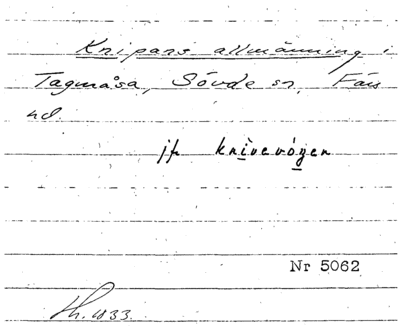 Knipans allmänning i
Tagmåsa, Sövde sn, Färs
hd.
jfr knivevógen
Nr 5062
Th. 1933.